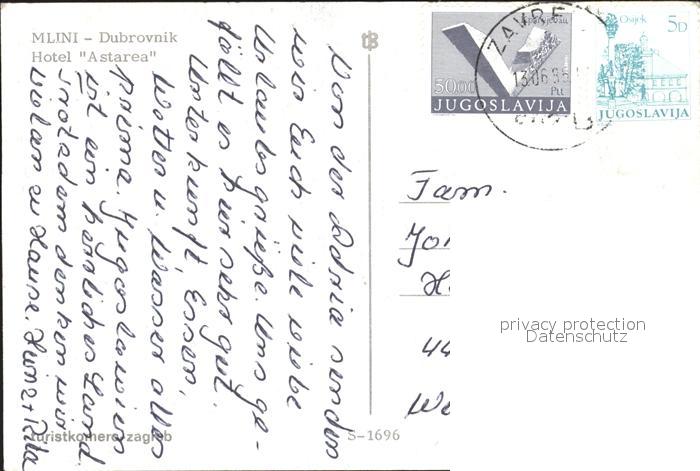 MLINI – Dubrovnik
Hotel "Astarea"
Von der Adria senden
wir Euch viele liebe
Urlaubsgrüße. Uns ge-
fällt es hier sehr gut.
Unterkunft, Essen,
Wetter u. Wasser alles
prima. Jugoslawien
ist ein herrliches Land
Trotzdem denken wir
vielan zu Hause. Heinz + Rita
turistkomerc, zagreb
S-1696
50.00
JUGOSLAVIJA
Osijek
5D
JUGOSLAVIJA
13.06.85
Fam.
privacy protection
Datenschutz